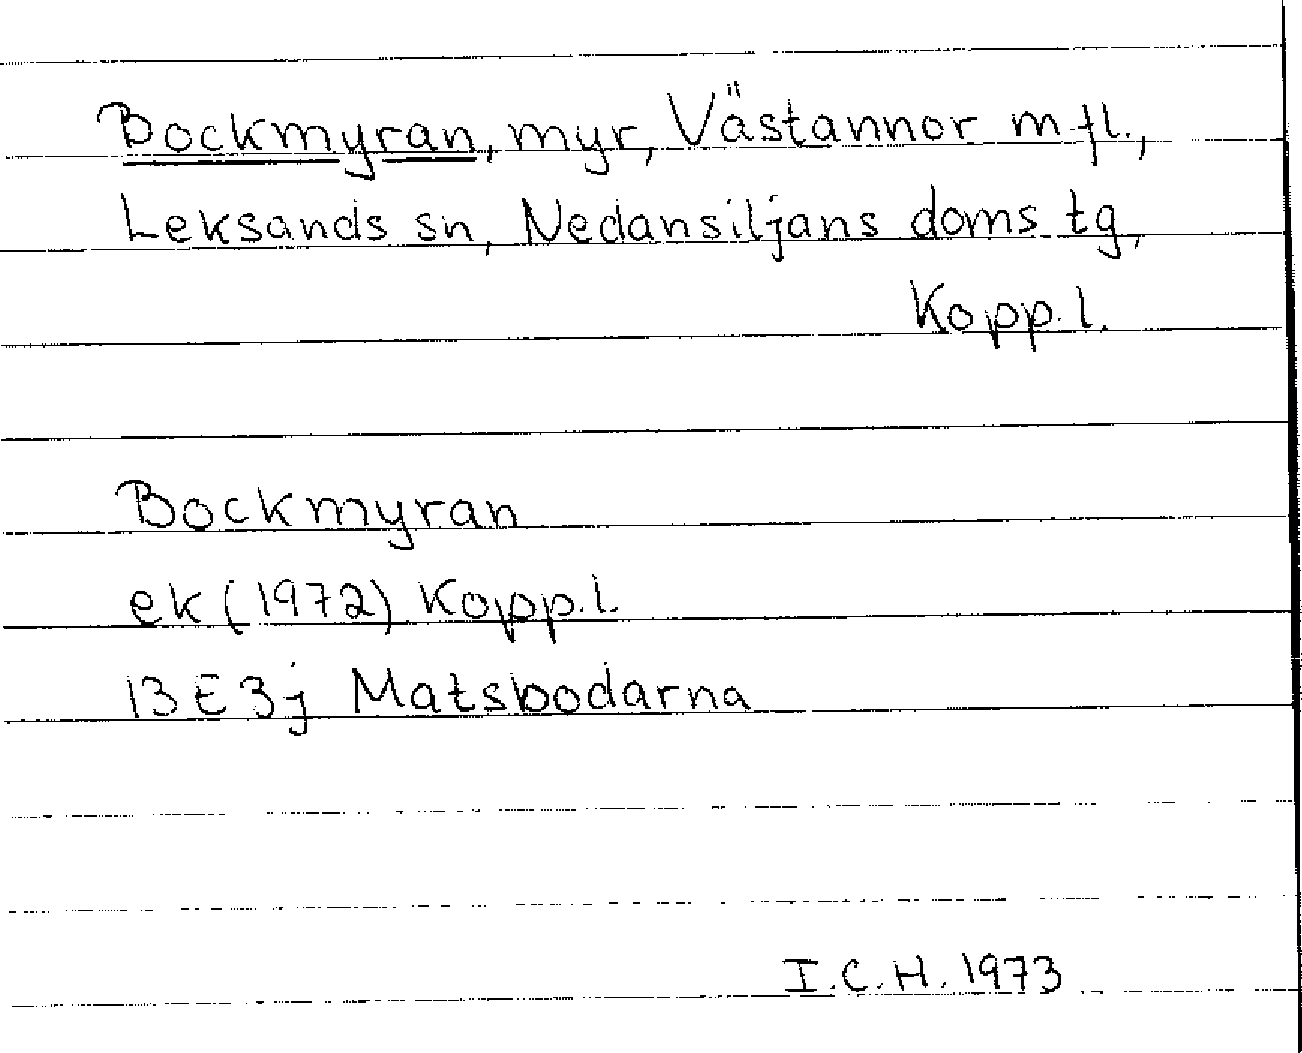 Bockmyran, myr, Västannor m fl.,
Leksands sn, Nedansiljans doms. tg,
Kopp. l.
Bockmyran
ek (1972) Kopp. l.
13 E 3 j Matsbodarna
I. C. H. 1973